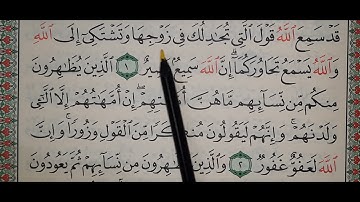 قَدْ سَمِعَ ٱللَّهُ قَوْلَ ٱلَّتِى تُجَٰدِلُكَ فِى زَوْجِهَا وَتَشْتَكِىٓ إِلَى ٱللَّهِ
وَٱللَّهُ يَسْمَعُ تَحَاوُرَكُمَآ إِنَّ ٱللَّهَ سَمِيعٌۢ ١ ٱلَّذِينَ يُظَٰهِرُونَ
مِنكُم مِّن نِّسَآئِهِم مَّا هُنَّ إِنْ أُمَّهَٰتُهُمْ إِلَّا ٱلَّٰٓـِٔى
وَلَدْنَهُمْ وَإِنَّهُمْ لَيَقُولُونَ مُنكَرًا مِّنَ ٱلْقَوْلِ وَزُورًا وَإِنَّ
ٱللَّهَ لَعَفُوٌّ غَفُورٌ ٢ وَٱلَّذِينَ مِن نِّسَآئِهِمْ ثُمَّ يَعُودُونَ